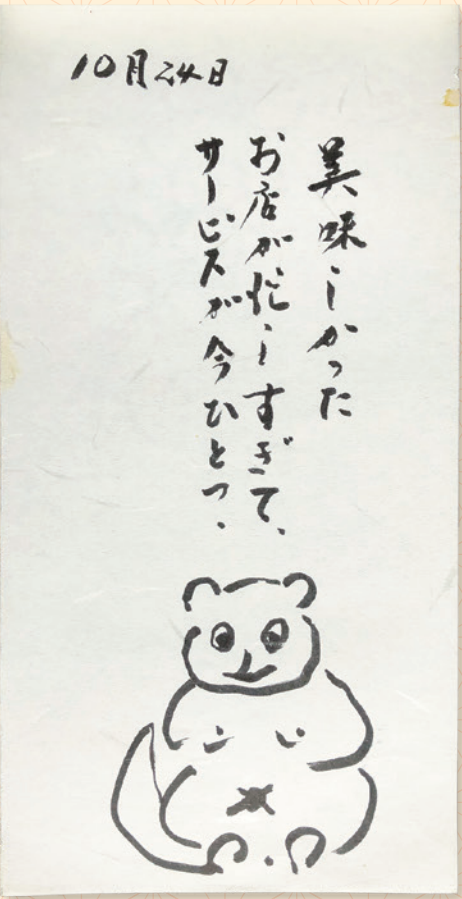 10月24日
美味しかった
お店が忙しすぎて、
サービスが今ひとつ、